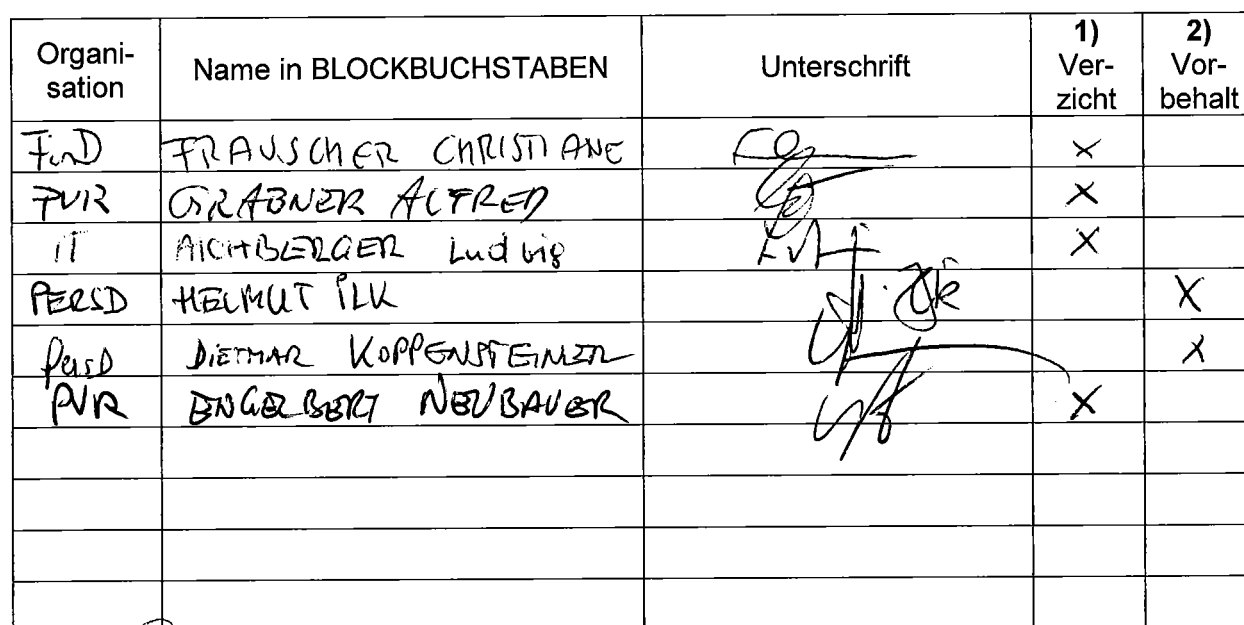 Organi-
sation
Name in BLOCKBUCHSTABEN
Unterschrift
1)
Ver-
zicht
2)
Vor-
behalt
FinD FRAUSCHER CHRISTIANE X
PVR GRABNER ALFRED X
IT AICHBERGER Ludwig X
PERSD HELMUT ILK X
PersD DIETMAR KOPPENSTEINER X
PVR ENGELBERT NEUBAUER X